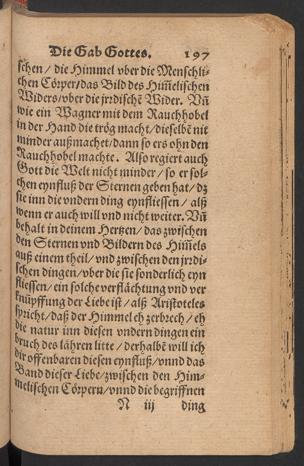 Die Gab Gottes. 197
schen / die Himmel vber die Menschli-
chen Cörper / das Bild des Him̃elischen
Widers / vber die jrdischē Wider. Vñ
wie ein Wagner mit dem Rauchhobel
in der Hand die trög macht / dieselbē nit
minder außmachet / dann so ers ohn den
Rauchhobel machte. Also regiert auch
Gott die Welt nicht minder / so er sol-
chen eynfluß der Sternen geben hat / dz
sie inn die vndern ding eynfliessen / alß
wenn er auch will vnd nicht weiter. Vñ
behalt in deinem Hertzen / das zwischen
den Sternen vnd Bildern des Him̃els
auß einem theil / vnd zwischen den jrdi-
schen dingen / vber die sie sonderlich eyn
fliessen / ein solche verflächtung vnd ver
knüpffung der Liebe ist / alß Aristoteles
spricht / daß der Himmel eh zerbrech / eh
die natur inn diesen vndern dingen ein
bruch des lähren litte / derhalbē will ich
dir offenbaren diesen eynfluß / vnnd das
Band dieser Liebe / zwischen den Him-
melischen Cörpern / vnnd die begriffnen
N iij ding